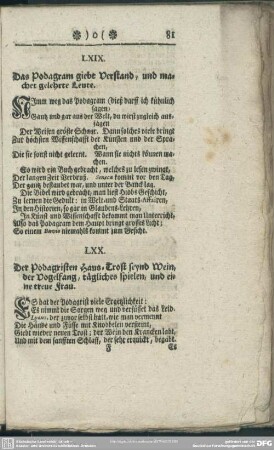 ❀ ) o ( ❀ 81
LXIX.
Das Podagram giebt Verstand, und ma-
chet gelehrte Leute.
NImm weg das Podagram (dieß darff ich kühnlich
sagen)
Gantz und gar aus der Welt, du wirst zugleich aus-
jagen
Der Weisen gröste Schaar. Dann solches viele bringt
Zur höchsten Wissenschafft der Künsten und der Spra-
chen,
Die sie sonst nicht gelernt. Wann sie nichts können ma-
chen.
So wird ein Buch gebracht, welches zu lesen zwingt,
Der langen Zeit Verdruß. kommt vor den Tag,
Der gantz bestaubet war, und unter der Banck lag.
Die Bibel wird gebracht, man liest Hiobs Geschicht,
Zu lernen die Gedult: in Welt- und Staats-Affairen,
In den Historien, so gar in Glaubens-Lehren,
In Künst und Wissenschafft bekommt man Unterricht,
Also das Podagram dem Hause bringt grosses Licht;
So einem niemahls kommt zum Gesicht.
LXX.
Der Podagristen Haus-Trost seynd Wein,
der Vogelfang, tägliches spielen, und ei-
ne treue Frau.
ES hat der Podagrist viele Ergötzlichkeit:
Es nimmt die Sorgen weg und versüsset das Leid.
der zuvor selbst halt, wie man vermeynt
Die Hände und Füsse mit Knobbelen versteint,
Giebt wieder neuen Trost; der Wein den Krancken labt,
Und mit dem sanfften Schlaff, der sehr erquickt, begabt.
F Es